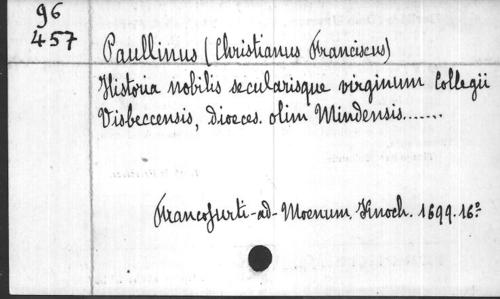 96
457
Paullinus (Christianus Franciscus)
Historia nobilis secularisque virginum Collegii
Visbeccensis, dioeces. olim Mindensis.......
Francofurti-ad-Moenum, Knoch. 1699. 16º